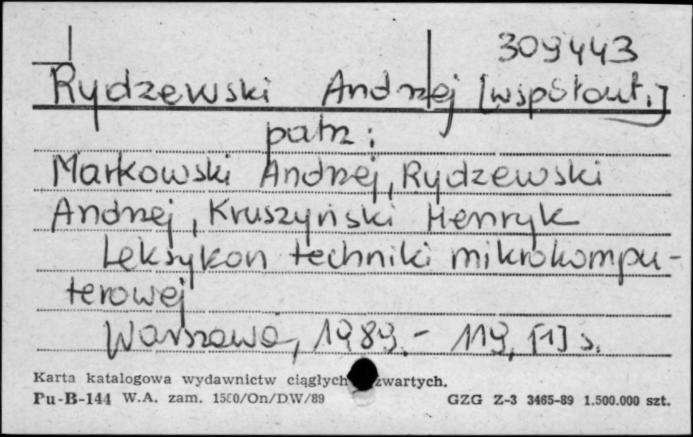 309443
Rydzewski Andrzej [współaut.]
patrz:
Markowski Andrzej, Rydzewski
Andrzej, Kruszyński Henryk
Leksykon techniki mikrokompu-
terowej
Warszawa, 1989.- 119, [1] s.
Karta katalogowa wydawnictw ciągłych zwartych.
Pu-B-144 W.A. zam. 1580/On/DW/89 GZG Z-3 3465-89 1.500.000 szt.